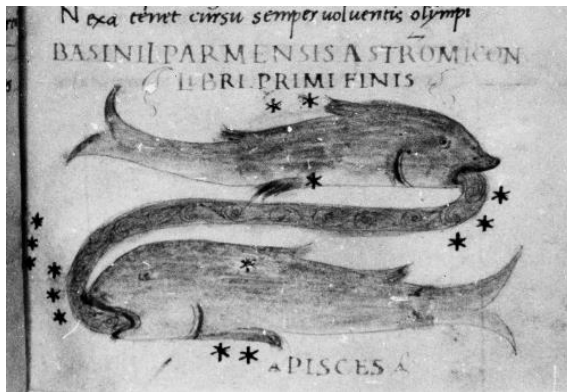 Nexa tenet cursu semper voluentis olympi
BASINII PARMENSIS ASTROMICON
LIBRI PRIMI FINIS
PISCES